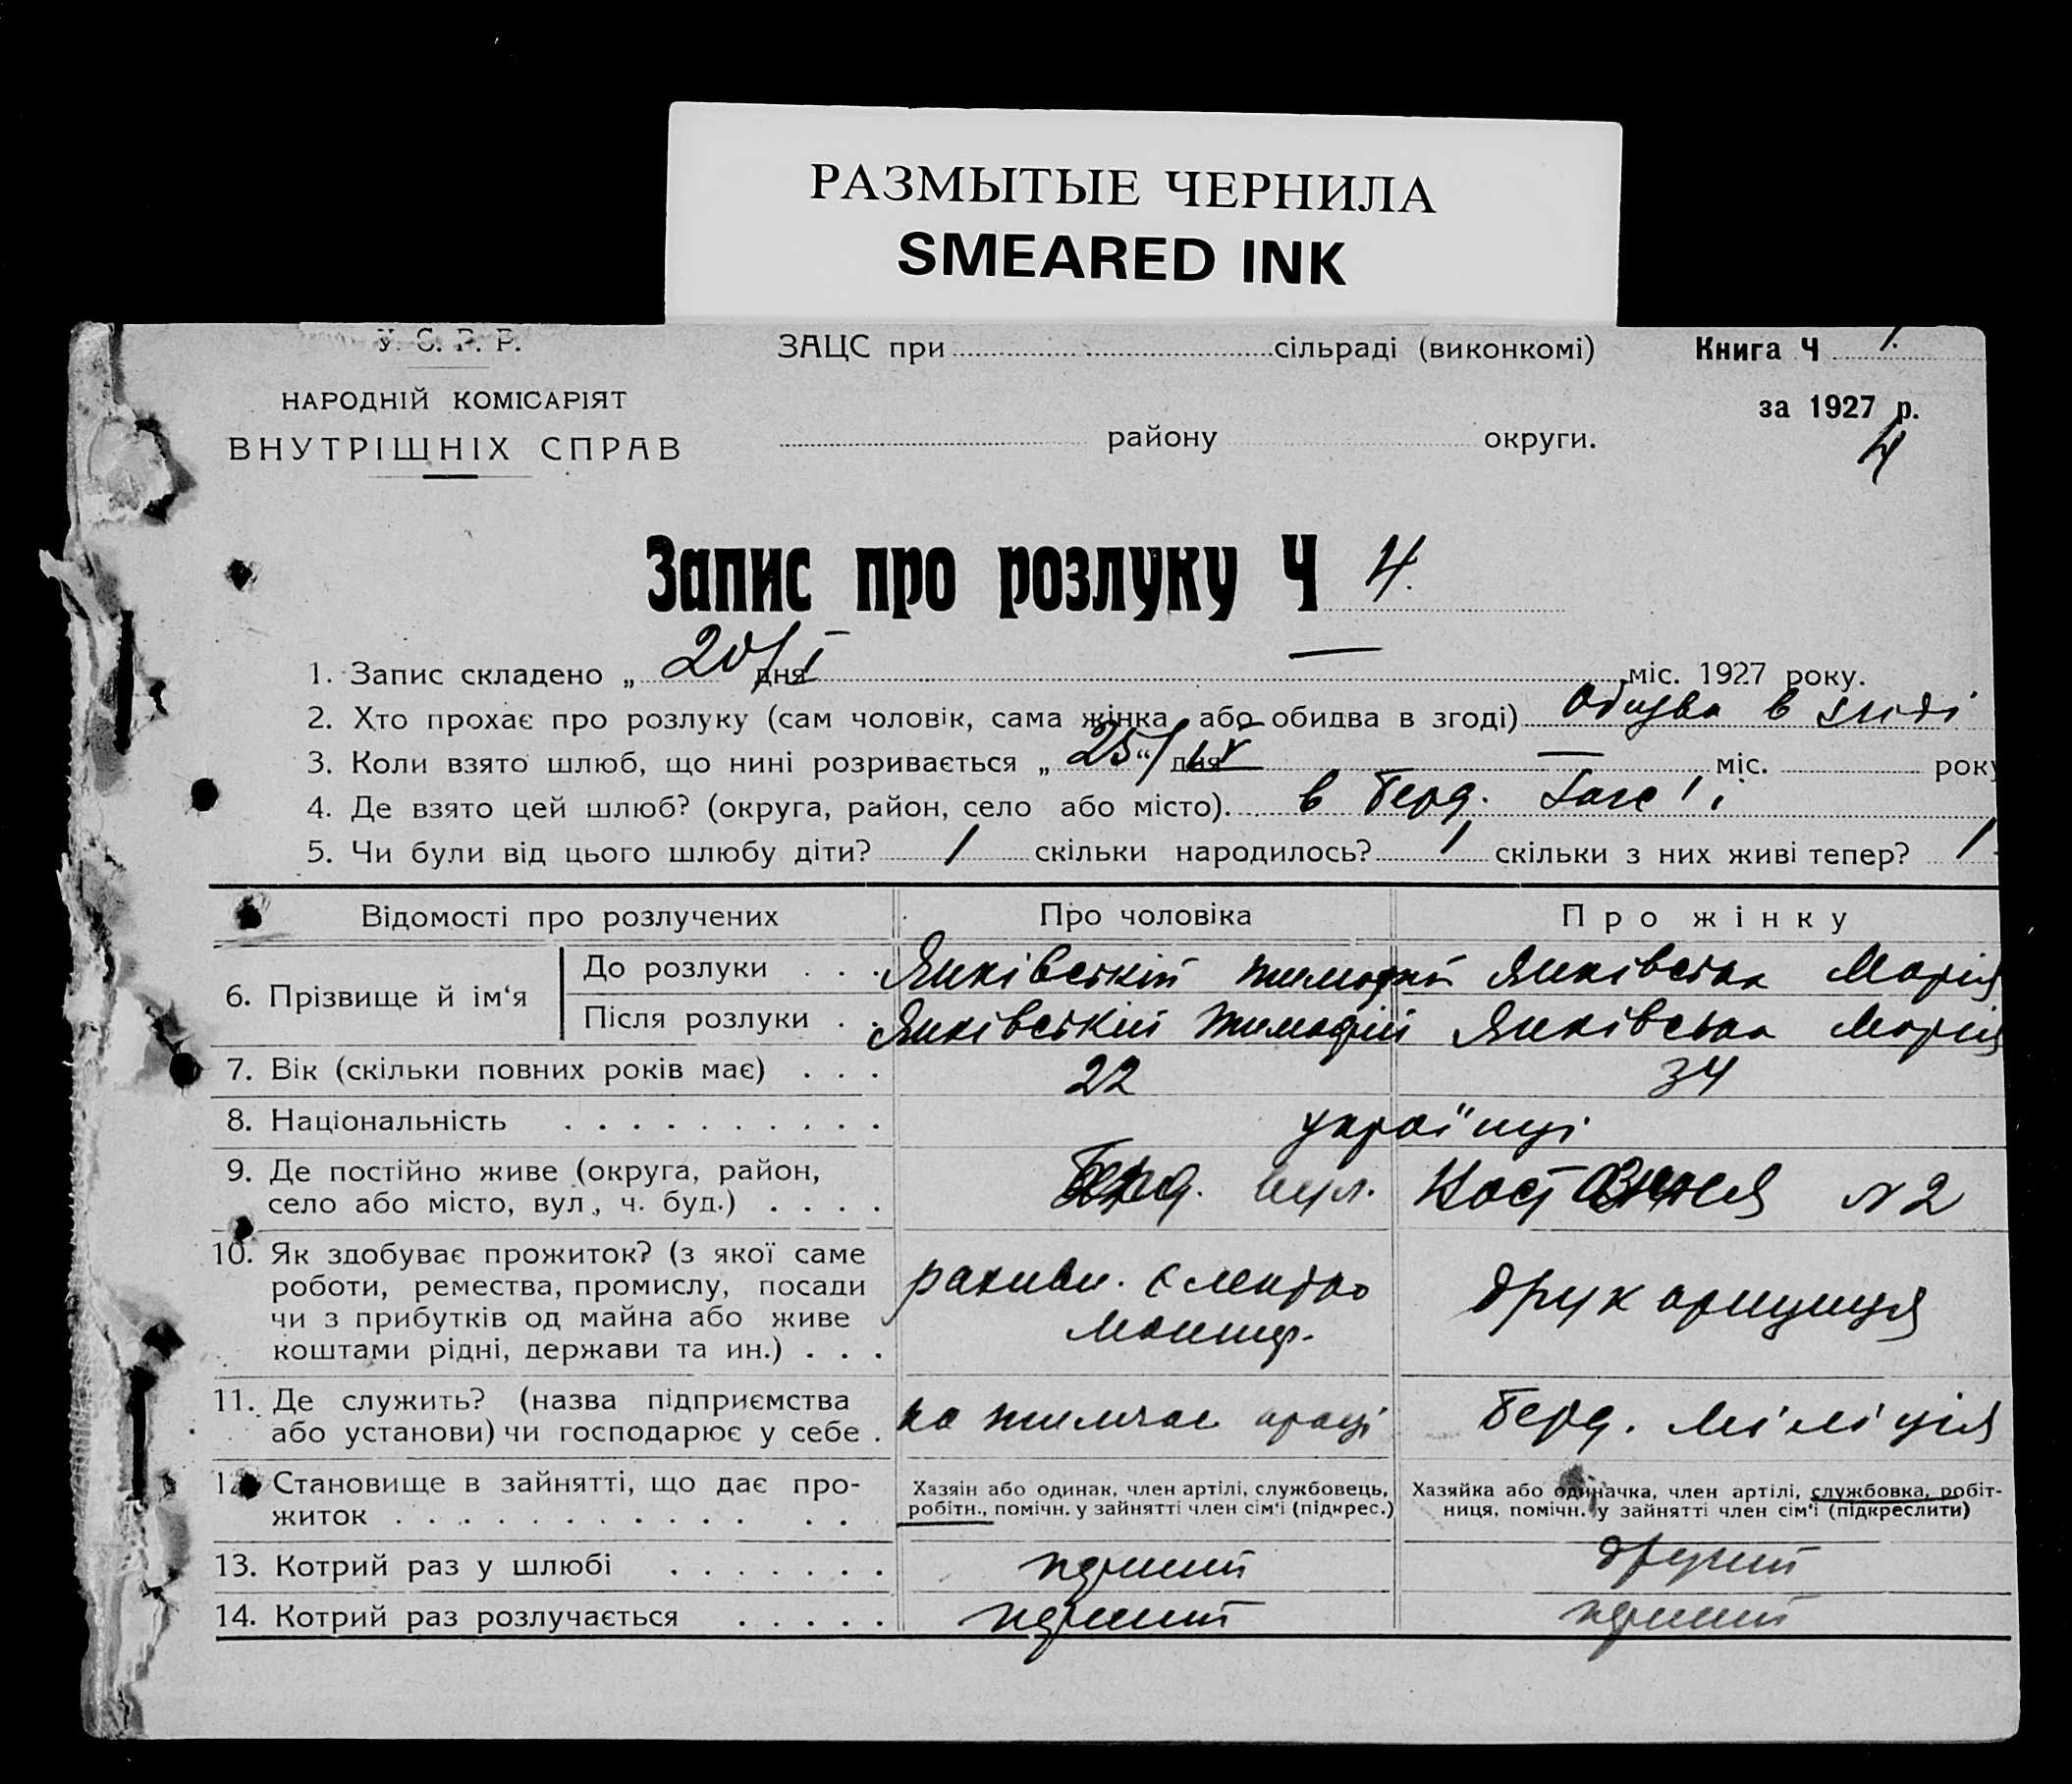 РАЗМЫТЫЕ ЧЕРНИЛА
SMEARED INK
У. С. Р. Р.
ЗАЦС при сільраді (виконкомі) Книга Ч 1.
НАРОДНІЙ КОМІСАРІЯТ
ВНУТРІШНІХ СПРАВ
району округи.
за 1927 р.
4
Запис про розлуку Ч 4.
1. Запис складено „ 20/I дня — міс. 1927 року.
2. Хто прохає про розлуку (сам чоловік, сама жінка або обидва в згоді) Обидва в згоді
3. Коли взято шлюб, що нині розривається „ 25/ “ дня — міс. року
4. Де взято цей шлюб? (округа, район, село або місто). в Берд. Загсі
5. Чи були від цього шлюбу діти? 1 скільки народилось? 1 скільки з них живі тепер? 1
Відомості про розлучених Про чоловіка Про жінку
6. Прізвище й ім‘я
До розлуки . . . Янківський Тимофій Янківська Марія
Після розлуки . . Янківський Тимофій Янківська Марія
7. Вік (скільки повних років має) . . . 22 34
8. Національність . . . . . . . . . . українці
9. Де постійно живе (округа, район,
село або місто, вул., ч. буд.) . . . . Берд. вул. № 2
10. Як здобуває прожиток? (з якої саме
роботи, ремества, промислу, посади
чи з прибутків од майна або живе
коштами рідні, держави та ин.) . . .
електро
монтер.
друкарщиця
11. Де служить? (назва підприємства
або установи) чи господарює у себе .
на тимчас праці
Берд. міліція
12. Становище в зайнятті, що дає про-
житок . . . . . . . . . . . . .
Хазяін або одинак, член артілі, службовець,
робітн., помічн. у зайнятті член сім‘ї (підкрес.)
Хазяйка або одиначка, член артілі, службовка, робіт-
ниця, помічн. у зайнятті член сім‘ї (підкреслити)
13. Котрий раз у шлюбі . . . . . . . перший другий
14. Котрий раз розлучається . . . . . перший перший